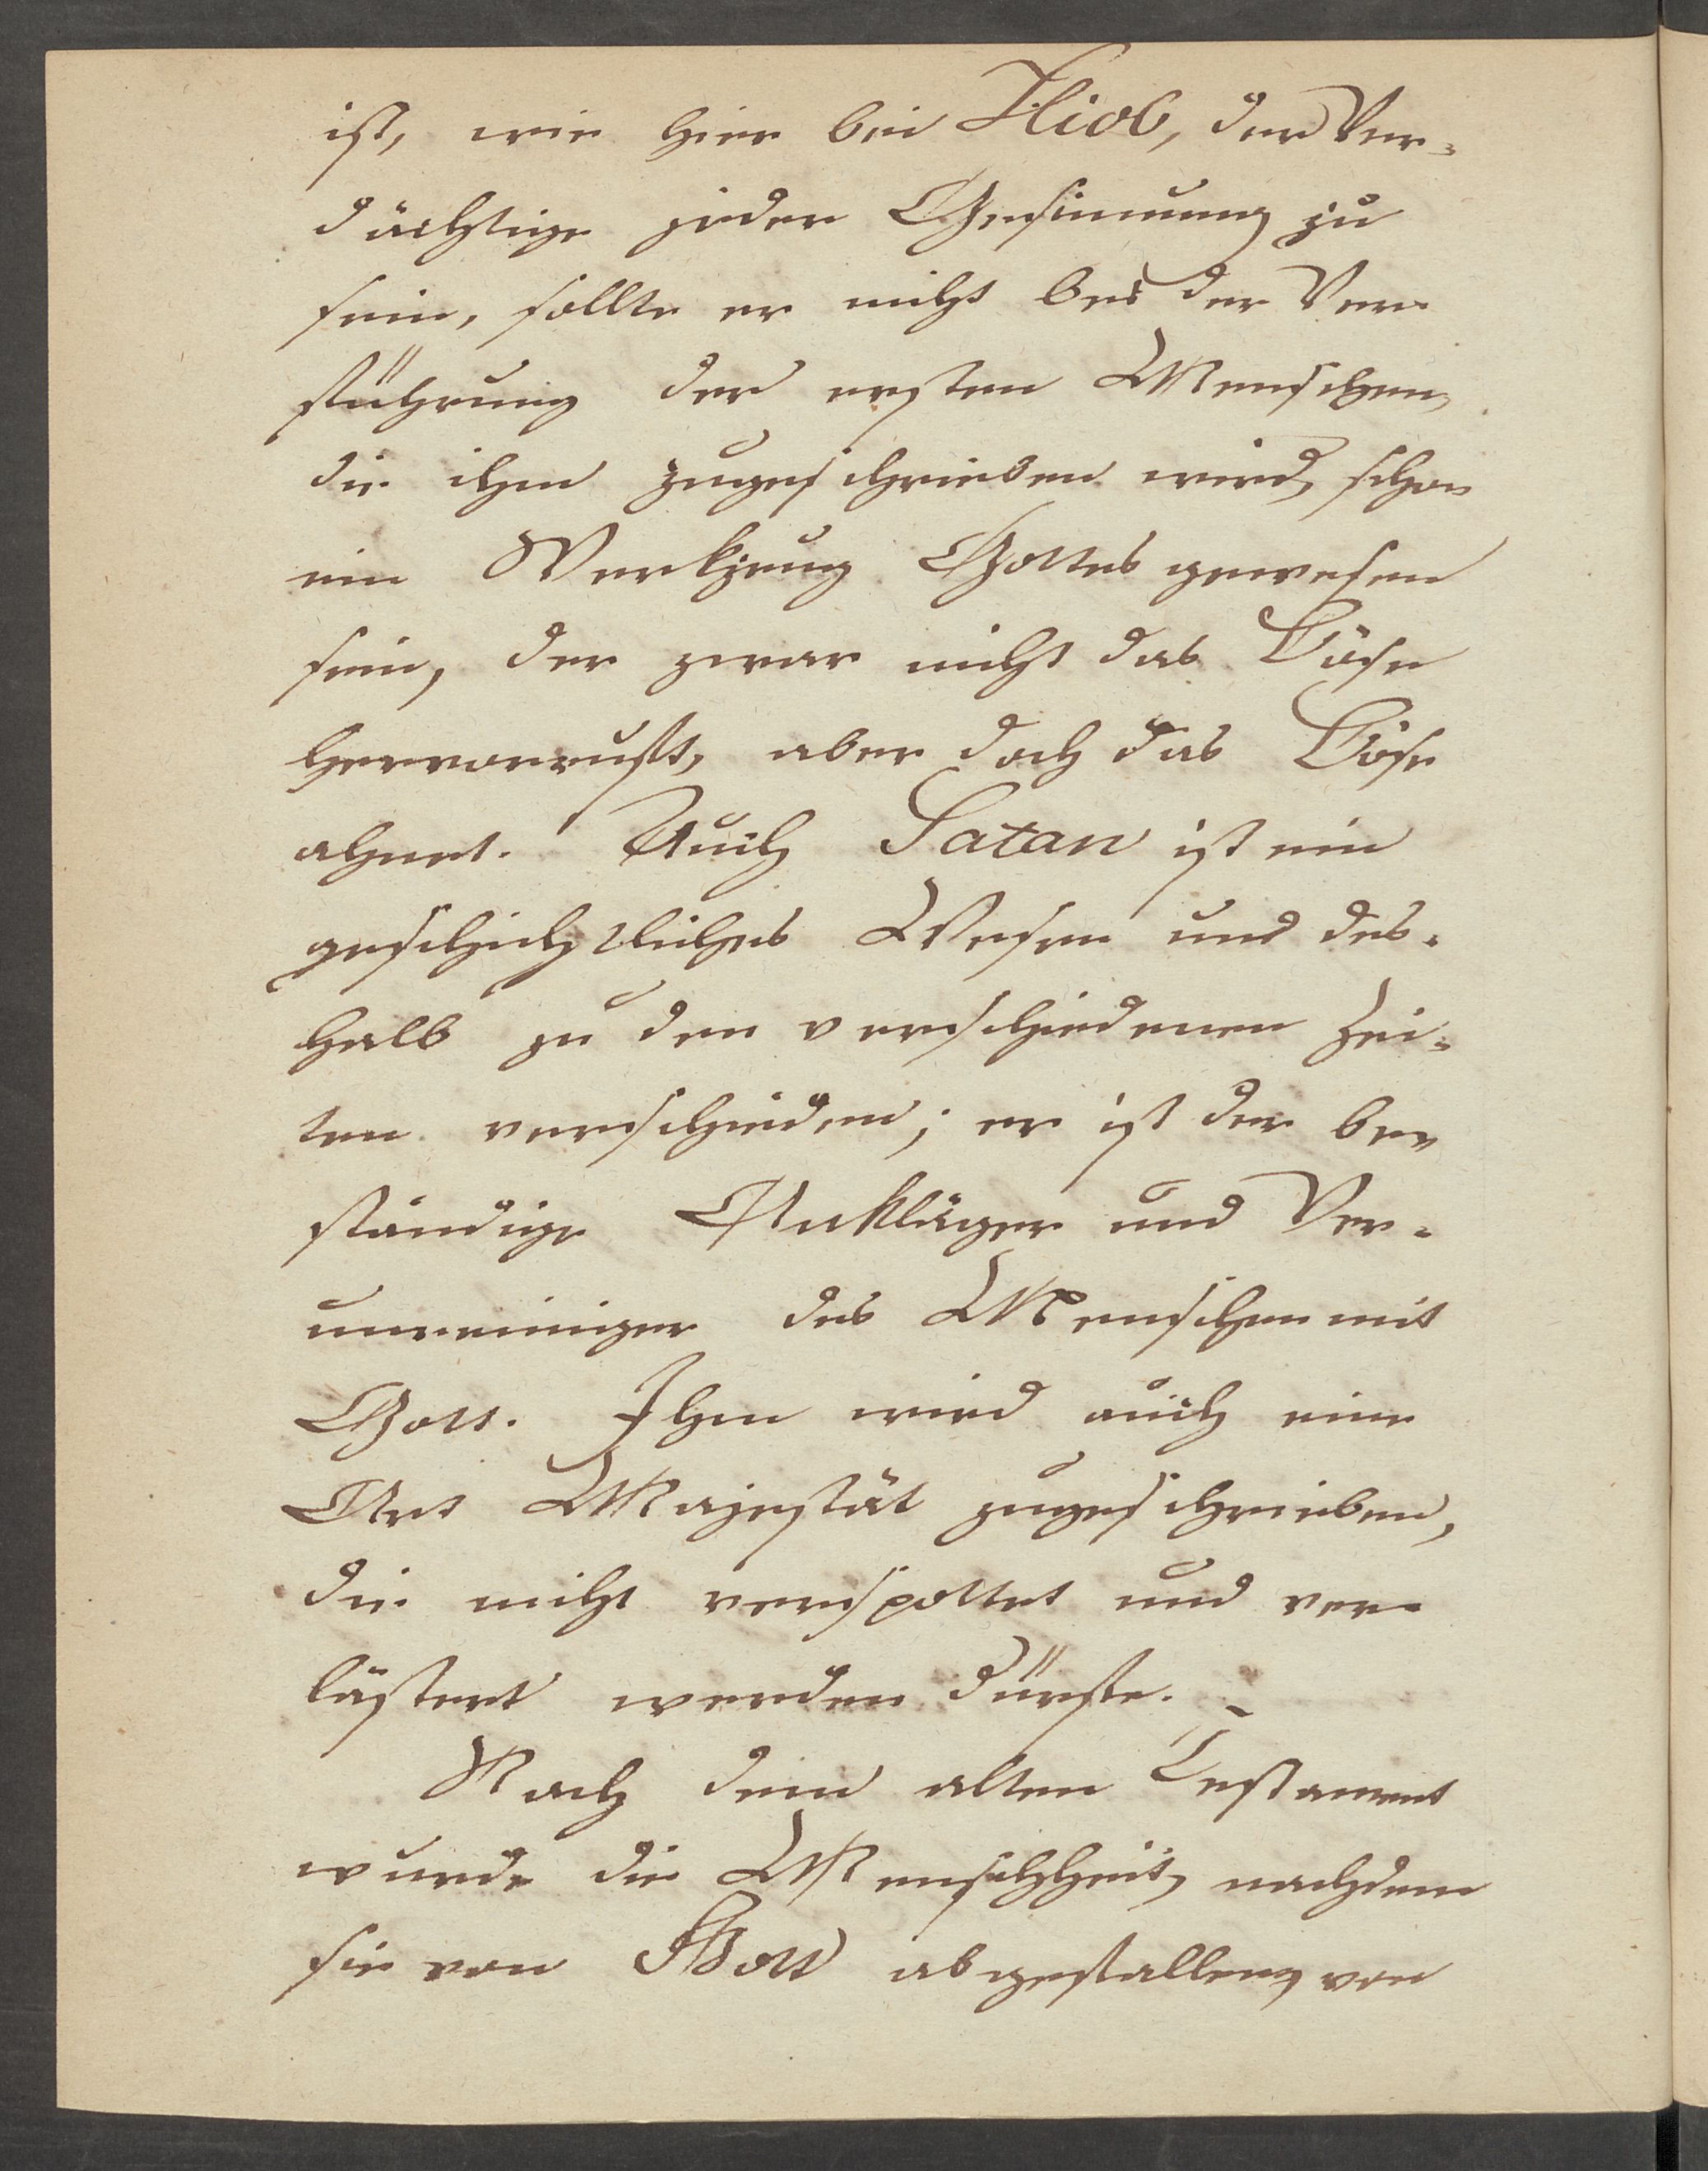 ist, wie hier bei Hiob, der Ver-
dächtige jeder Gesinnung zu
sein, sollte er nicht bei der Ver-
führung der ersten Menschen,
die ihm zugeschrieben wird, schon
ein Werkzeug Gottes gewesen
sein, der zwar nicht das Böse
hervorruft, aber doch das Böse
ahnet. Auch Satan ist ein
geschichtliches Wesen und des-
halb zu den verschiedenen Zei-
ten verschieden; er ist der be-
ständige Ankläger und Ver-
unreiniger des Menschen mit
Gott. Ihm wird auch eine
Art Majestät zugeschrieben,
die nicht verspottet und ver-
lästert werden dürfte. –
Nach dem alten Testament
wurde die Menschheit, nachdem
sie von Gott abgefallen, von